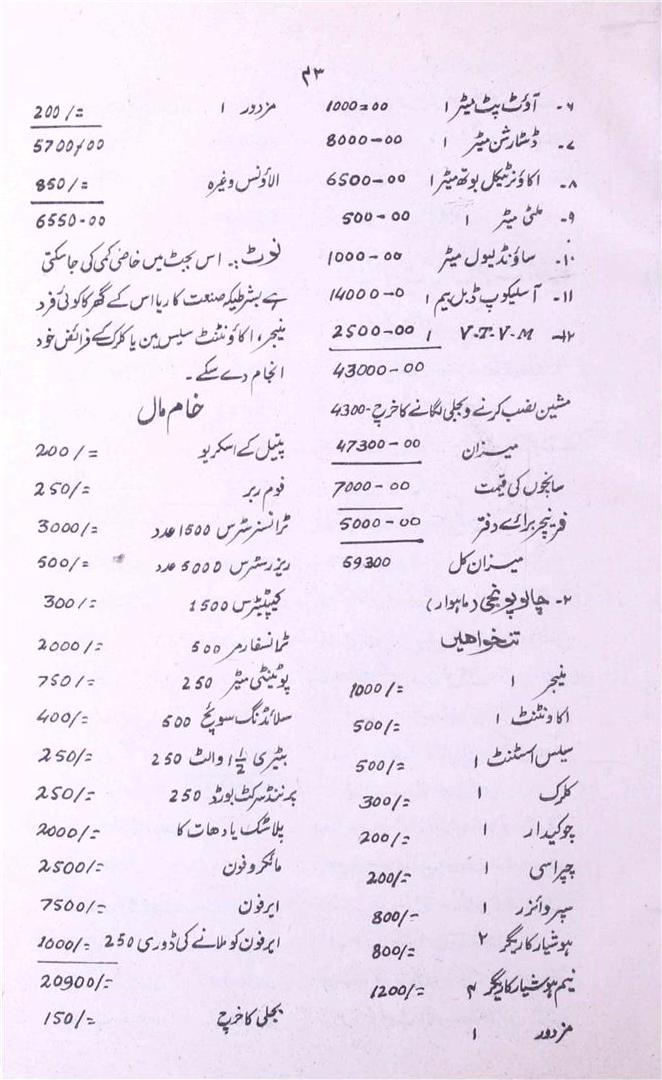 ۴۳
۶۔ آؤٹ پٹ میٹر ۱ 1000=00
۷۔ ڈسٹارشن میٹر ۱ 8000-00
۸۔ اکاؤنٹیکل بوتھ میٹر ۱ 6500-00
۹۔ ملٹی میٹر ۱ 500-00
۱۰۔ ساؤنڈ لیول میٹر 1000-00
۱۱۔ آسلیکوپ ڈبل بیم ۱ 14000-0
۱۲۔ V.T.V.M ۱ 2500-00
43000-00
مشین نصب کرنے و بجلی لگانے کا خرچ 4300-
میزان 47300-00
سانچوں کی قیمت 7000-00
فرنیچر برائے دفتر 5000-00
میزان کل 59300
۲۔ چالو پونجی (ماہوار)
تنخواہیں
منیجر ۱ 1000/=
اکاونٹنٹ ۱ 500/=
سیلس اسٹنٹ ۱ 500/=
کلرک ۱ 300/=
چوکیدار ۱ 200/=
چپراسی ۱ 200/=
سپروائزر ۱ 800/=
ہوشیار کاریگر ۲ 800/=
نیم ہوشیار کاریگر ۴ 1200/=
مزدور ۱
مزدور ۱ 200/=
5700/00
الاؤنس وغیرہ 850/=
6550-00
نوٹ:۔ اس بجٹ میں خاصی کمی کی جا سکتی
ہے بشرطیکہ صنعت کار یا اس کے گھر کا کوئی فرد
منیجر، اکاؤنٹنٹ سیلس مین یا کلرک کے فرائض خود
انجام دے سکے۔
خام مال
پیتل کے اسکریو 200/=
فوم ربر 250/=
ٹرانسسٹرس 1500 عدد 3000/=
ریزسٹرس 5000 عدد 500/=
کیپٹیٹرس 1500 300/=
ٹرانسفارمر 500 2000/=
پوٹینٹی میٹر 250 750/=
سلائڈنگ سوئچ 500 400/=
بیٹری 1½ والٹ 250 250/=
پرنٹڈ سرکٹ بورڈ 250 250/=
پلاسٹک یا دھات کا 2000/=
مائکروفون 2500/=
ایرفون 7500/=
ایرفون کو ملانے کی ڈوری 250 1000/=
20900/=
بجلی کا خرچ 150/=